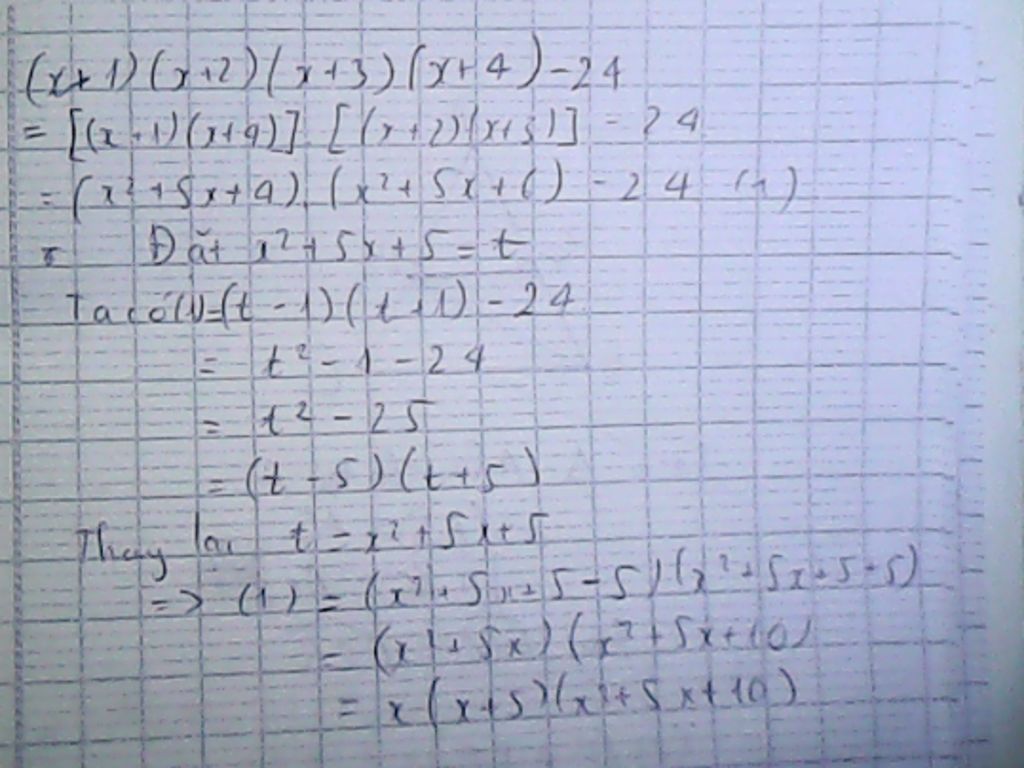 (x+1)(x+2)(x+3)(x+4)-24
= [(x+1)(x+4)].[(x+2)(x+3)] - 24
= (x²+5x+4).(x²+5x+6) - 24 (1)
Đặt x²+5x+5=t
Ta có (1)=(t-1)(t+1)-24
= t²-1-24
= t²-25
= (t-5)(t+5)
Thay lại t=x²+5x+5
=> (1) = (x²+5x+5-5)(x²+5x+5+5)
= (x²+5x)(x²+5x+10)
= x(x+5)(x²+5x+10)